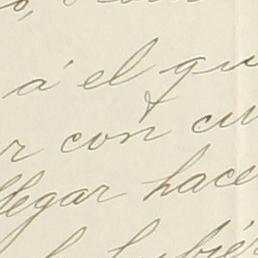 á el qu
r con cu
llegar hace
hubié